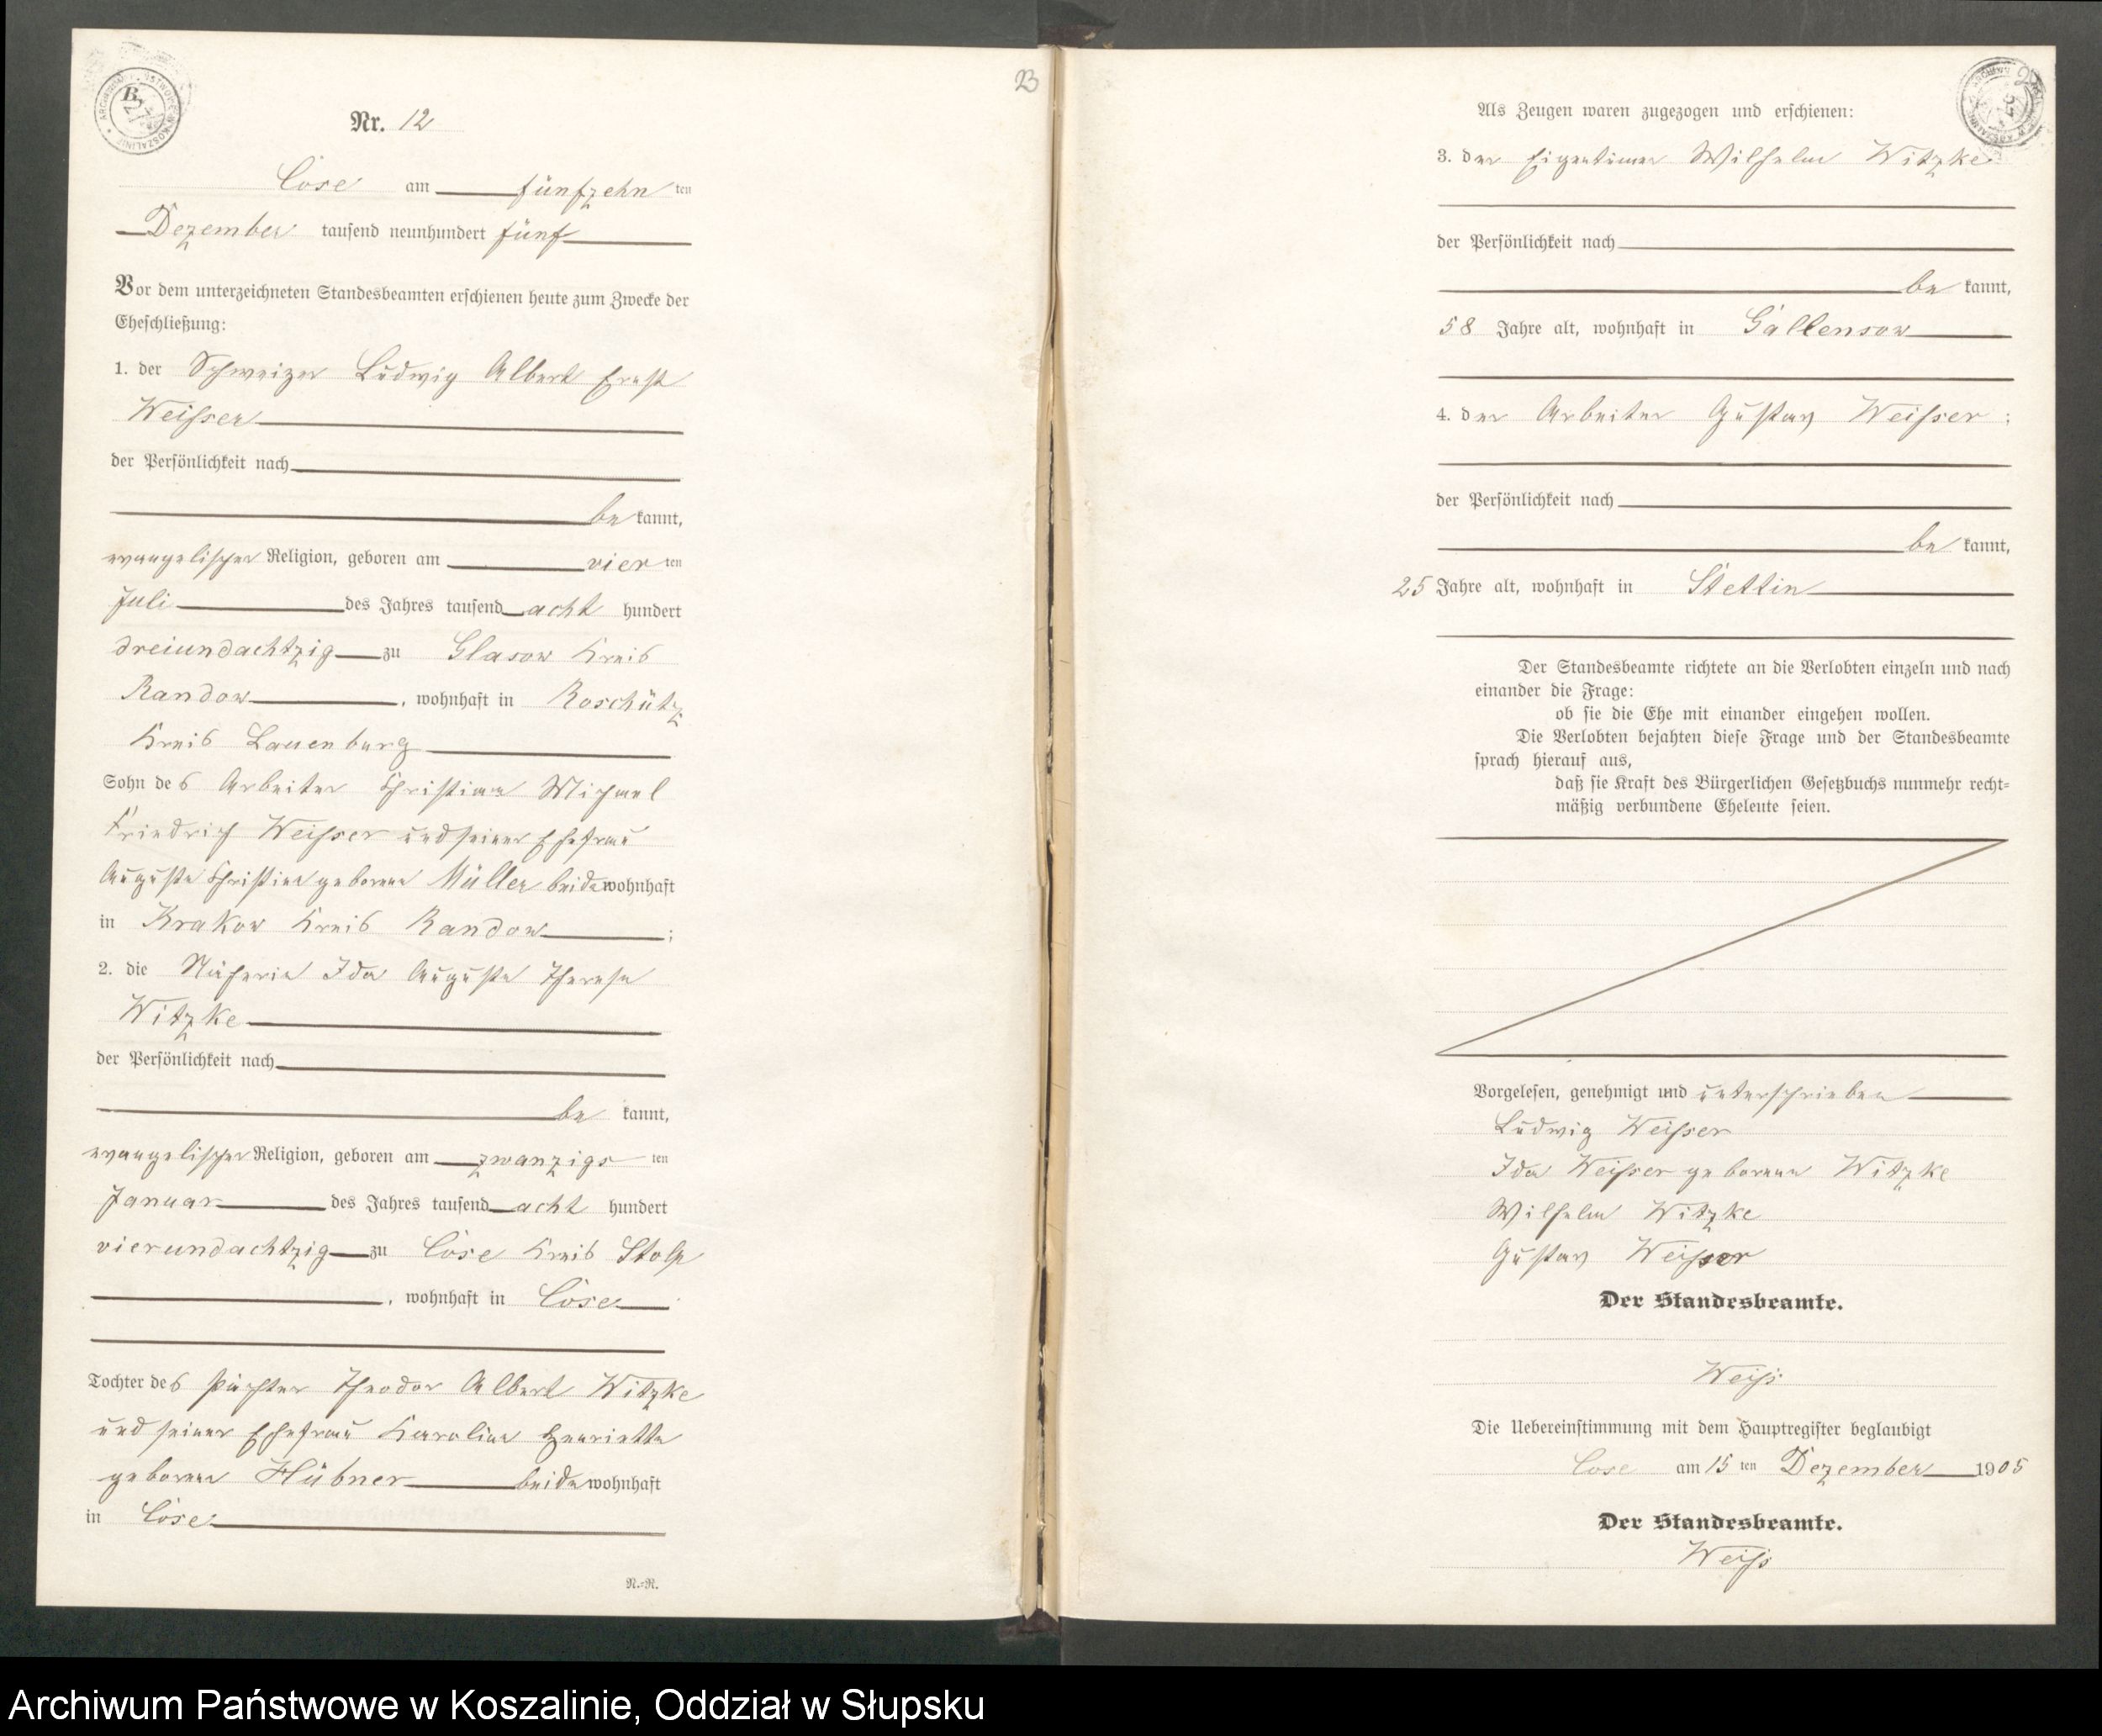 23
Nr. 12
Cose am fünfzehn ten
Dezember tausend neunhundert fünf
Vor dem unterzeichneten Standesbeamten erschienen heute zum Zwecke der
Eheschließung:
1. der Schweizer Ludwig Albert Ernst
Weisser
der Persönlichkeit nach
be kannt,
evangelischer Religion, geboren am vier ten
Juli des Jahres tausend acht hundert
dreiundachtzig zu Glasow Kreis
Randow, wohnhaft in Roschütz
Kreis Lauenburg
Sohn des Arbeiter Christian Michael
Friedrich Weisser und seiner Ehefrau
Auguste Christine geborene Müller beide wohnhaft
in Krakow Kreis Randow;
2. die Näherin Ida Auguste Therese
Witzke
der Persönlichkeit nach
be kannt,
evangelischer Religion, geboren am zwanzigs ten
Januar des Jahres tausend acht hundert
vierundachtzig zu Cose Kreis Stolp
, wohnhaft in Cose
Tochter des Pächter Theodor Albert Witzke
und seiner Ehefrau Karoline Henriette
geborene Hübner beide wohnhaft
in Cose
N.=N.
Als Zeugen waren zugezogen und erschienen:
3. der Eigentümer Wilhelm Witzke
der Persönlichkeit nach
be kannt,
58 Jahre alt, wohnhaft in Gallensow
4. der Arbeiter Gustav Weisser;
der Persönlichkeit nach
be kannt,
25 Jahre alt, wohnhaft in Stettin
Der Standesbeamte richtete an die Verlobten einzeln und nach
einander die Frage:
ob sie die Ehe mit einander eingehen wollen.
Die Verlobten bejahten diese Frage und der Standesbeamte
sprach hierauf aus,
daß sie kraft des Bürgerlichen Gesetzbuchs nunmehr recht=
mäßig verbundene Eheleute seien.
Vorgelesen, genehmigt und unterschrieben
Ludwig Weisser
Ida Weisser geborene Witzke
Wilhelm Witzke
Gustav Weisser
Der Standesbeamte.
Weiss
Die Uebereinstimmung mit dem Hauptregister beglaubigt
Cose am 15 ten Dezember 1905
Der Standesbeamte.
Weiss
Archiwum Państwowe w Koszalinie, Oddział w Słupsku